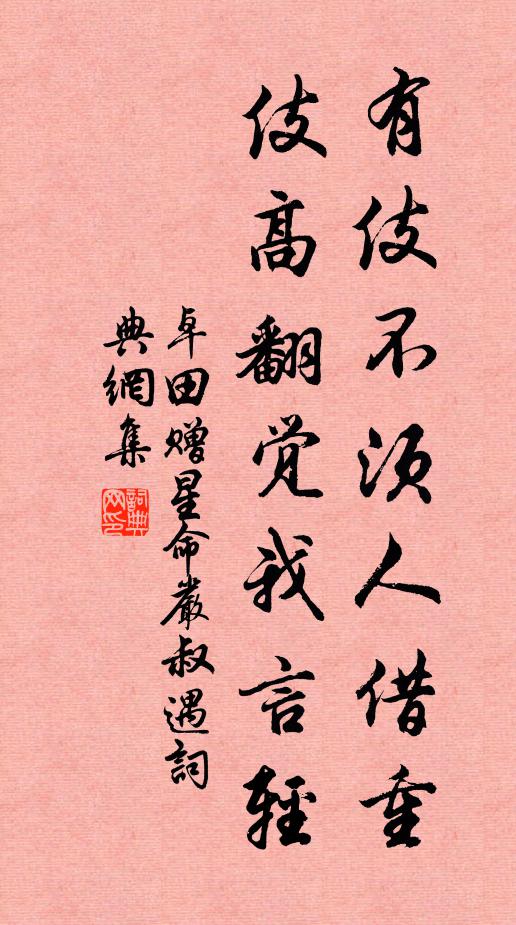 有伎不须人借重
伎高翻觉我言轻
卓田赠星命严叔遇词
典网集
词典网印